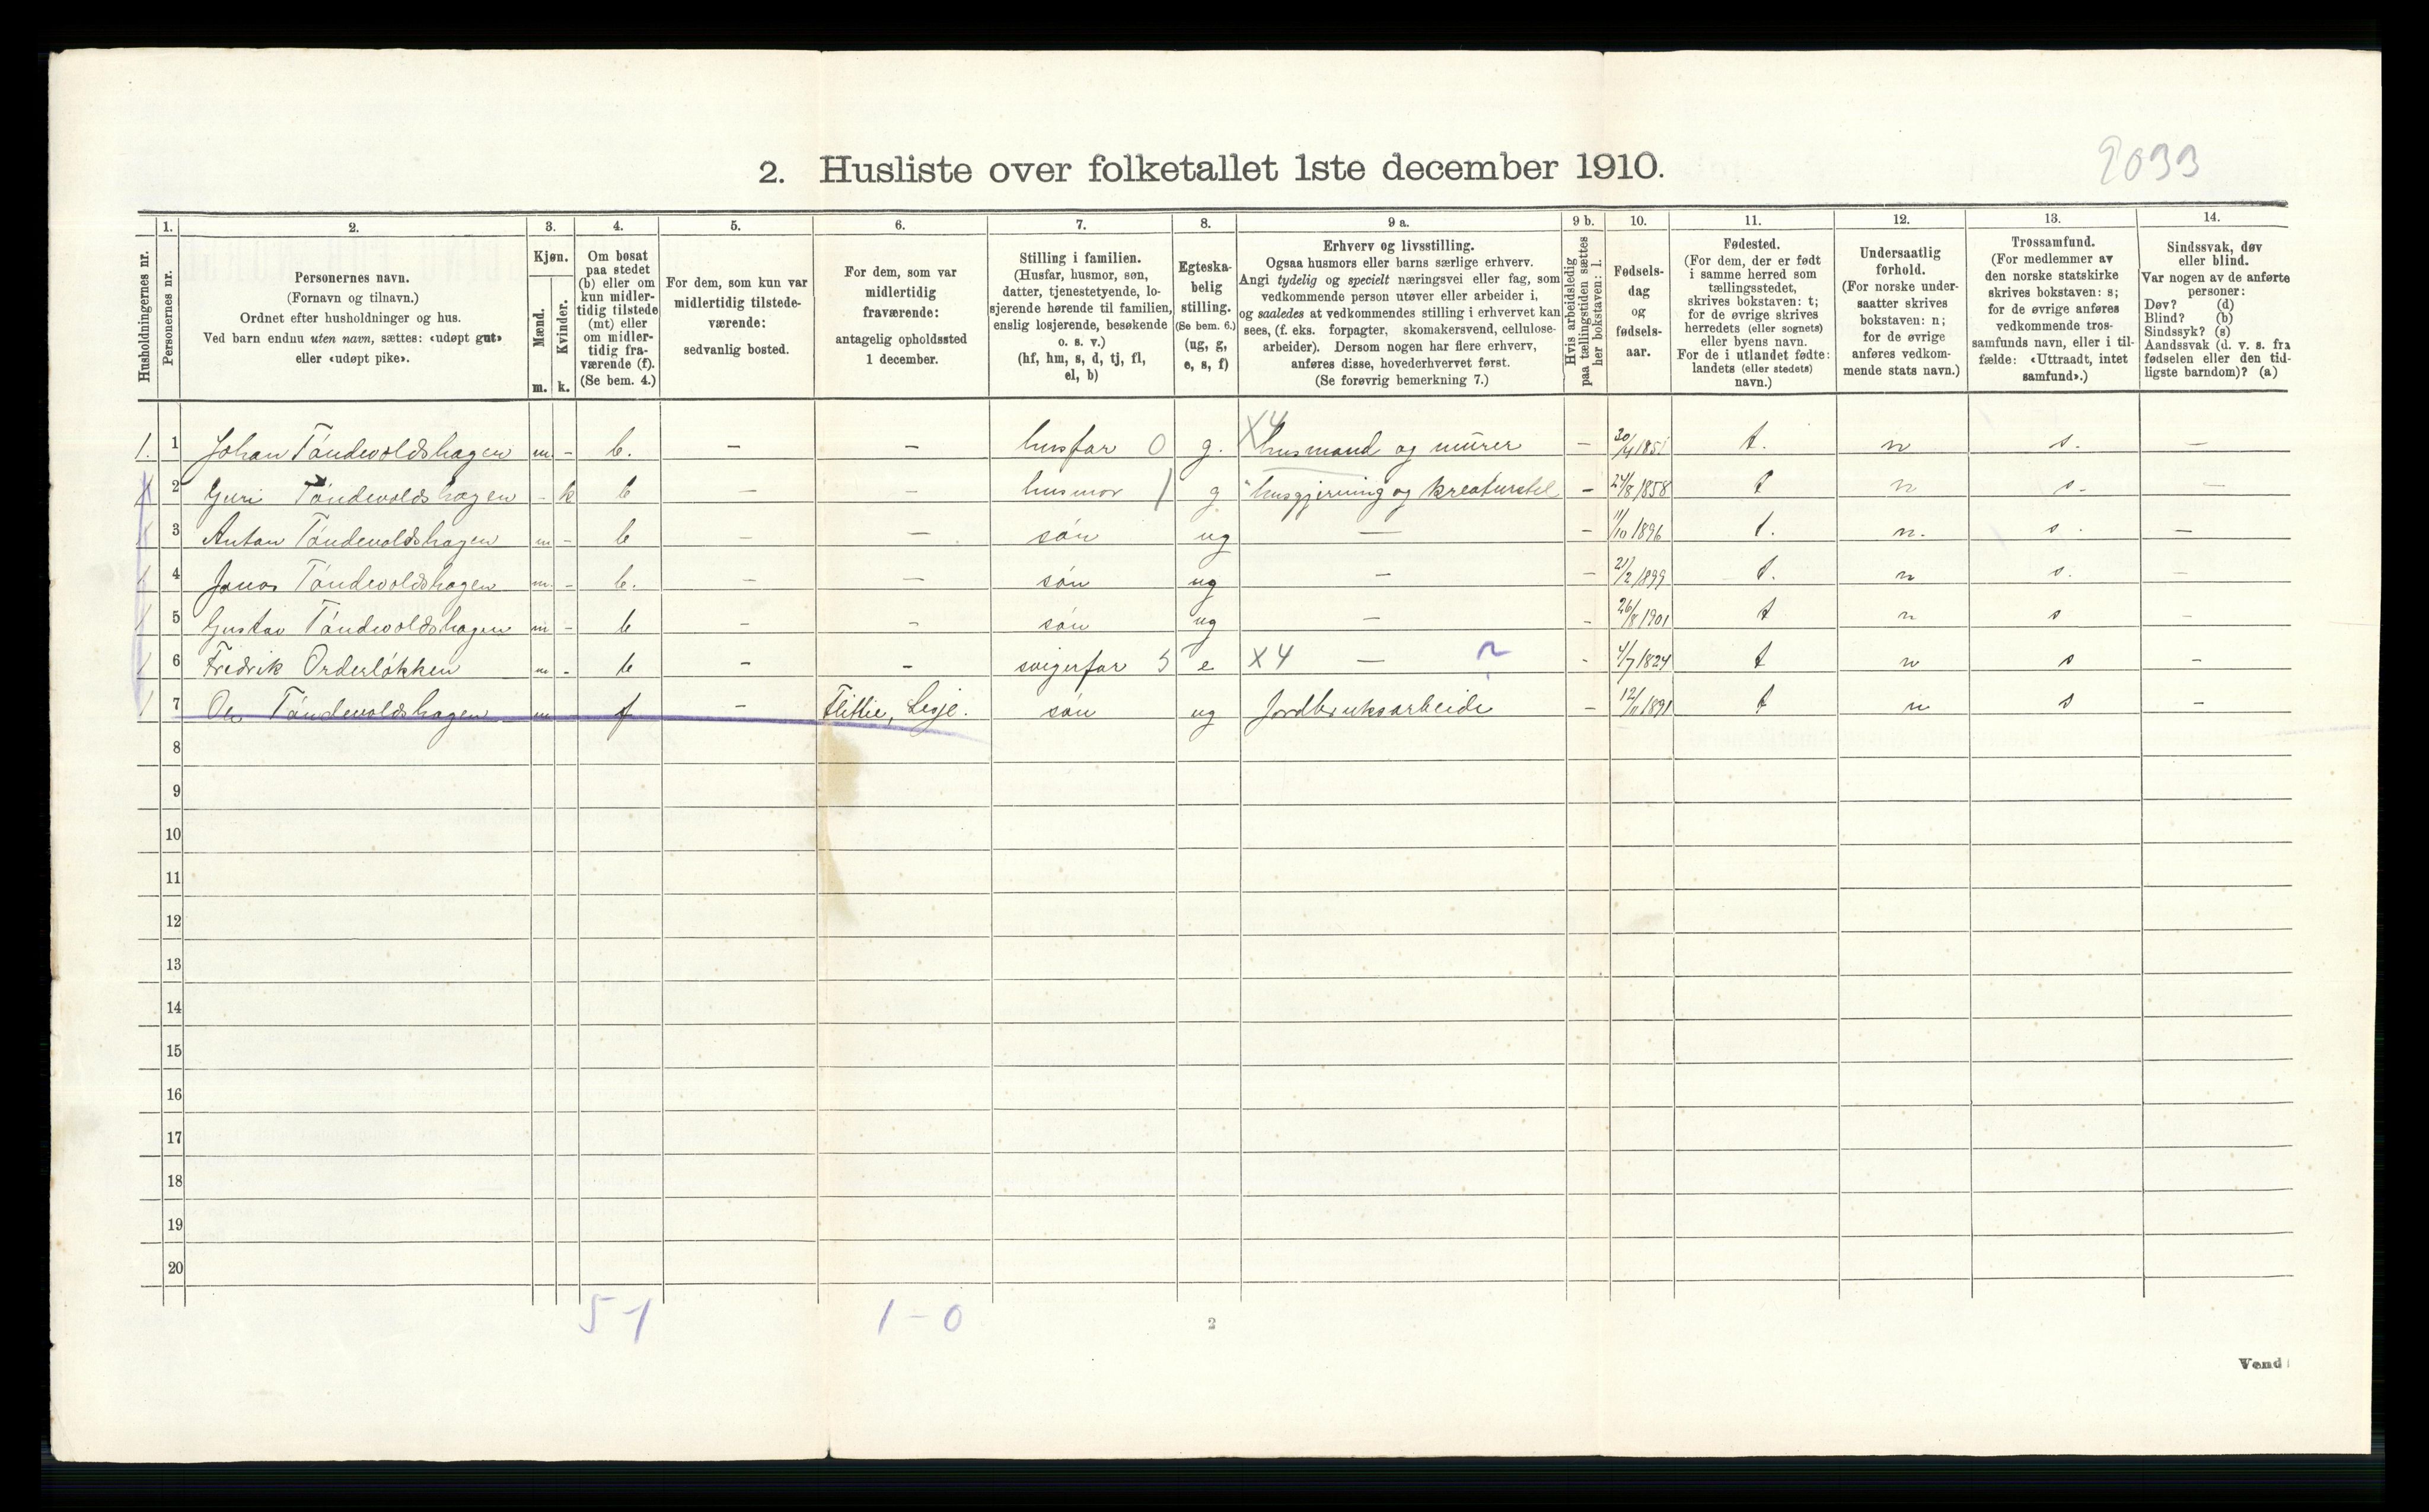 2. Husliste over folketallet 1ste december 1910.
2033
Husholdningernes nr.
1. Personernes nr.
2. Personernes navn.
(Fornavn og tilnavn.)
Ordnet efter husholdninger og hus.
Ved barn endnu uten navn, sættes: «udøpt gut»
eller «udøpt pike».
3. Kjøn.
Mænd. Kvinder.
m. k.
4. Om bosat
paa stedet
(b) eller om
kun midler-
tidig tilstede
(mt) eller
om midler-
tidig fra-
værende (f).
(Se bem. 4.)
5. For dem, som kun var
midlertidig tilstede-
værende:
sedvanlig bosted.
6. For dem, som var
midlertidig
fraværende:
antagelig opholdssted
1 december.
7. Stilling i familien.
(Husfar, husmor, søn,
datter, tjenestetyende, lo-
sjerende hørende til familien,
enslig losjerende, besøkende
o. s. v.)
(hf, hm, s, d, tj, fl,
el, b)
8. Egteska-
belig
stilling.
(Se bem. 6.)
(ug, g,
e, s, f)
9 a. Erhverv og livsstilling.
Ogsaa husmors eller barns særlige erhverv.
Angi tydelig og specielt næringsvei eller fag, som
vedkommende person utøver eller arbeider i,
og saaledes at vedkommendes stilling i erhvervet kan
sees, (f. eks. forpagter, skomakersvend, cellulose-
arbeider). Dersom nogen har flere erhverv,
anføres disse, hovederhvervet først.
(Se forøvrig bemerkning 7.)
9 b. Hvis arbeidsledig
paa tællingstiden sættes
her bokstaven: l.
10. Fødsels-
dag
og
fødsels-
aar.
11. Fødested.
(For dem, der er født
i samme herred som
tællingsstedet,
skrives bokstaven: t;
for de øvrige skrives
herredets (eller sognets)
eller byens navn.
For de i utlandet fødte:
landets (eller stedets)
navn.)
12. Undersaatlig
forhold.
(For norske under-
saatter skrives
bokstaven: n;
for de øvrige
anføres vedkom-
mende stats navn.)
13. Trossamfund.
(For medlemmer av
den norske statskirke
skrives bokstaven: s;
for de øvrige anføres
vedkommende tros-
samfunds navn, eller i til-
fælde: «Uttraadt, intet
samfund».)
14. Sindssvak, døv
eller blind.
Var nogen av de anførte
personer:
Døv? (d)
Blind? (b)
Sindssyk? (s)
Aandssvak (d. v. s. fra
fødselen eller den tid-
ligste barndom)? (a)
1. 1 Johan Tøndevoldshagen m. - b. - - husfar 0 g. X4 husmand og mürer - 30/4 1851 t. n s. -
2 Guri Tøndevoldshagen - k b - - husmor 1 g husgjerning og kreaturstel - 24/8 1858 t n s. -
3 Anton Tøndevoldshagen m - b - - søn ug - - 11/10 1896 t. n. s. -
4 Jonas Tøndevoldshagen m. - b. - - søn ug - - 21/2 1899 t. n s. -
5 Gustav Tøndevoldshagen m - b - - søn ug - - 26/8 1901 t n s -
6 Fredrik Orderløkken m - b - - svigerfar 5 e X4 - - 4/7 1824 t n s -
7 Ole Tøndevoldshagen m f - Flittie, Lesje. søn ug Jordbruksarbeide - 12/11 1891 t n s -
8
9
10
11
12
13
14
15
16
17
18
19
20
5 1
1 - 0
2
Vend